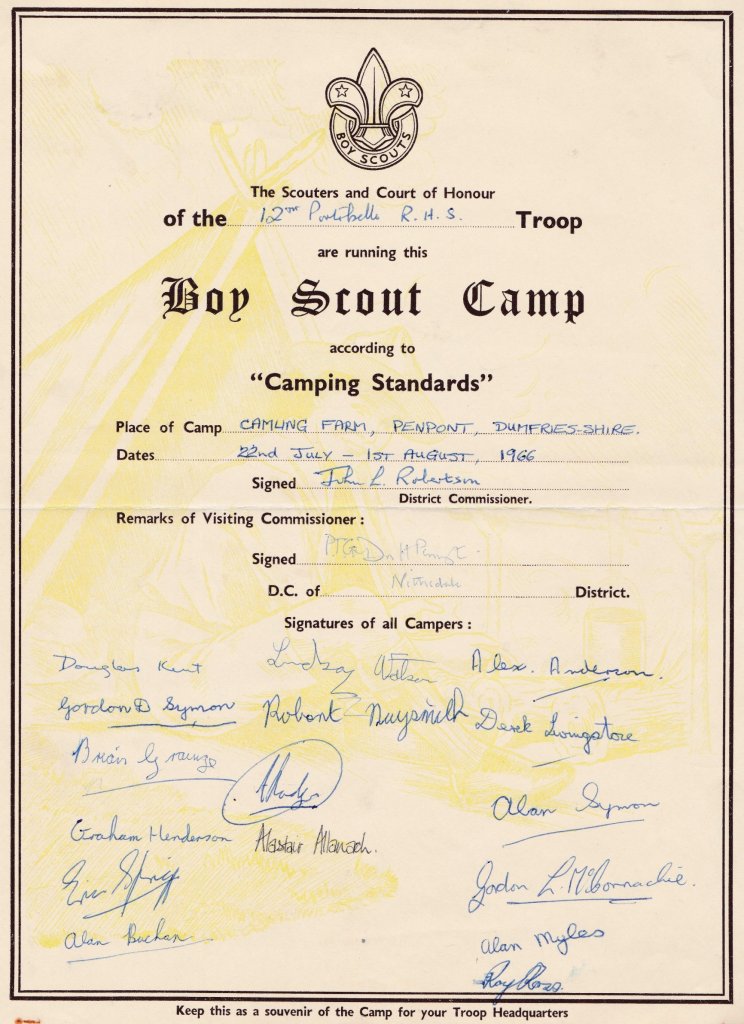 BOY SCOUTS
The Scouters and Court of Honour
of the 12TH Portobello R. H. S. Troop
are running this
Boy Scout Camp
according to
"Camping Standards"
Place of Camp CAMLING FARM, PENPONT, DUMFRIES-SHIRE.
Dates 22nd JULY - 1ST AUGUST, 1966
Signed John L. Robertson
District Commissioner.
Remarks of Visiting Commissioner :
Signed
D.C. of Nithsdale District.
Signatures of all Campers :
Douglas Kent Lindsay Watson Alex. Anderson.
Gordon D Symon Robert Naysmith Derek Livingstone
Brian Grainge
Alan Symon
Graham Henderson Alastair Allanach.
Eric Gordon L. McConnachie.
Alan Buchan
Alan Myles
Roy Ross.
Keep this as a souvenir of the Camp for your Troop Headquarters